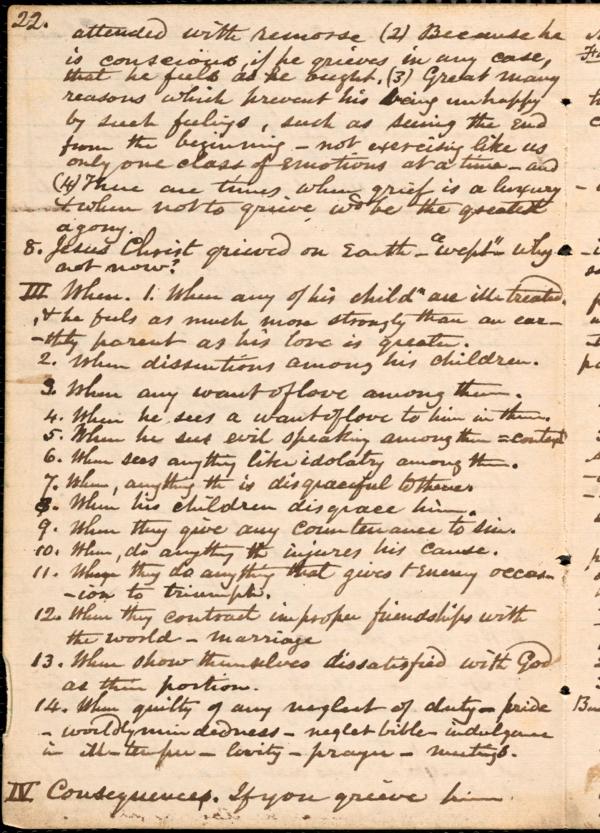 22.
attended with remorse (2) Because he
is conscious, if he grieves in any case,
that he feels as he ought. (3) Great many
reasons which prevent his being unhappy
by such feelings, such as seeing the End
from the beginning - not exercising like us
only one class of Emotions at a time - and
(4) There are times when grief is a luxury
& when not to grieve wd be the greatest
agony.
8. Jesus Christ grieved on Earth - "wept" why
not now?
III When. 1. When any of his childn are ill-treated.
& he feels as much more strongly than an ear-
-thly parent as his love is greater.
2. When dissentions among his children.
3. When any want of love among them.
4. When he sees a want of love to him in them.
5. When he sees evil speaking among them = context
6. When sees anything like idolatry among them.
7. When, anything th is disgraceful to them
8. When his children disgrace him.
9. When they give any countenance to sin.
10. When, do anything th injures his cause.
11. When they do anything that gives t Enemy occas-
-ion to triumph.
12. When they contract improper friendships with
the world - marriage
13. When show themselves dissatisfied with God
as their portion.
14. When guilty of any neglect of duty - pride
- worldly mindedness - neglet bible - indulgence
in ill-temper - levity - prayer - meetings.
IV Consequences. If you grieve him